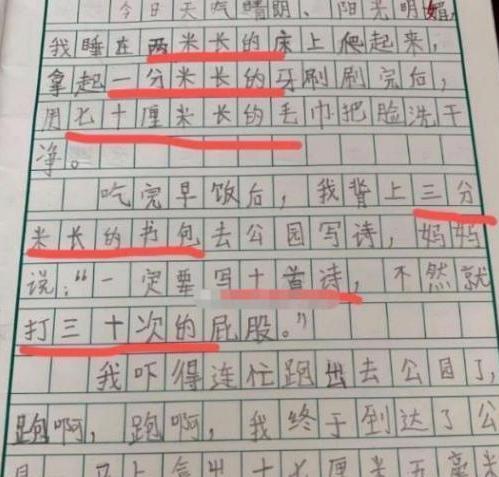 今日天气晴朗、阳光明媚,
我睡在两米长的床上爬起来,
拿起一分米长的牙刷刷完后,
用七十厘米长的毛巾把脸洗干
净。
吃完早饭后,我背上三分
米长的书包去公园写诗,妈妈
说:“一定要写十首诗,不然就
打三十次的屁股。”
我吓得连忙跑出去公园了,
跑啊,跑啊,我终于到达了公
马上拿出十七厘米五毫米